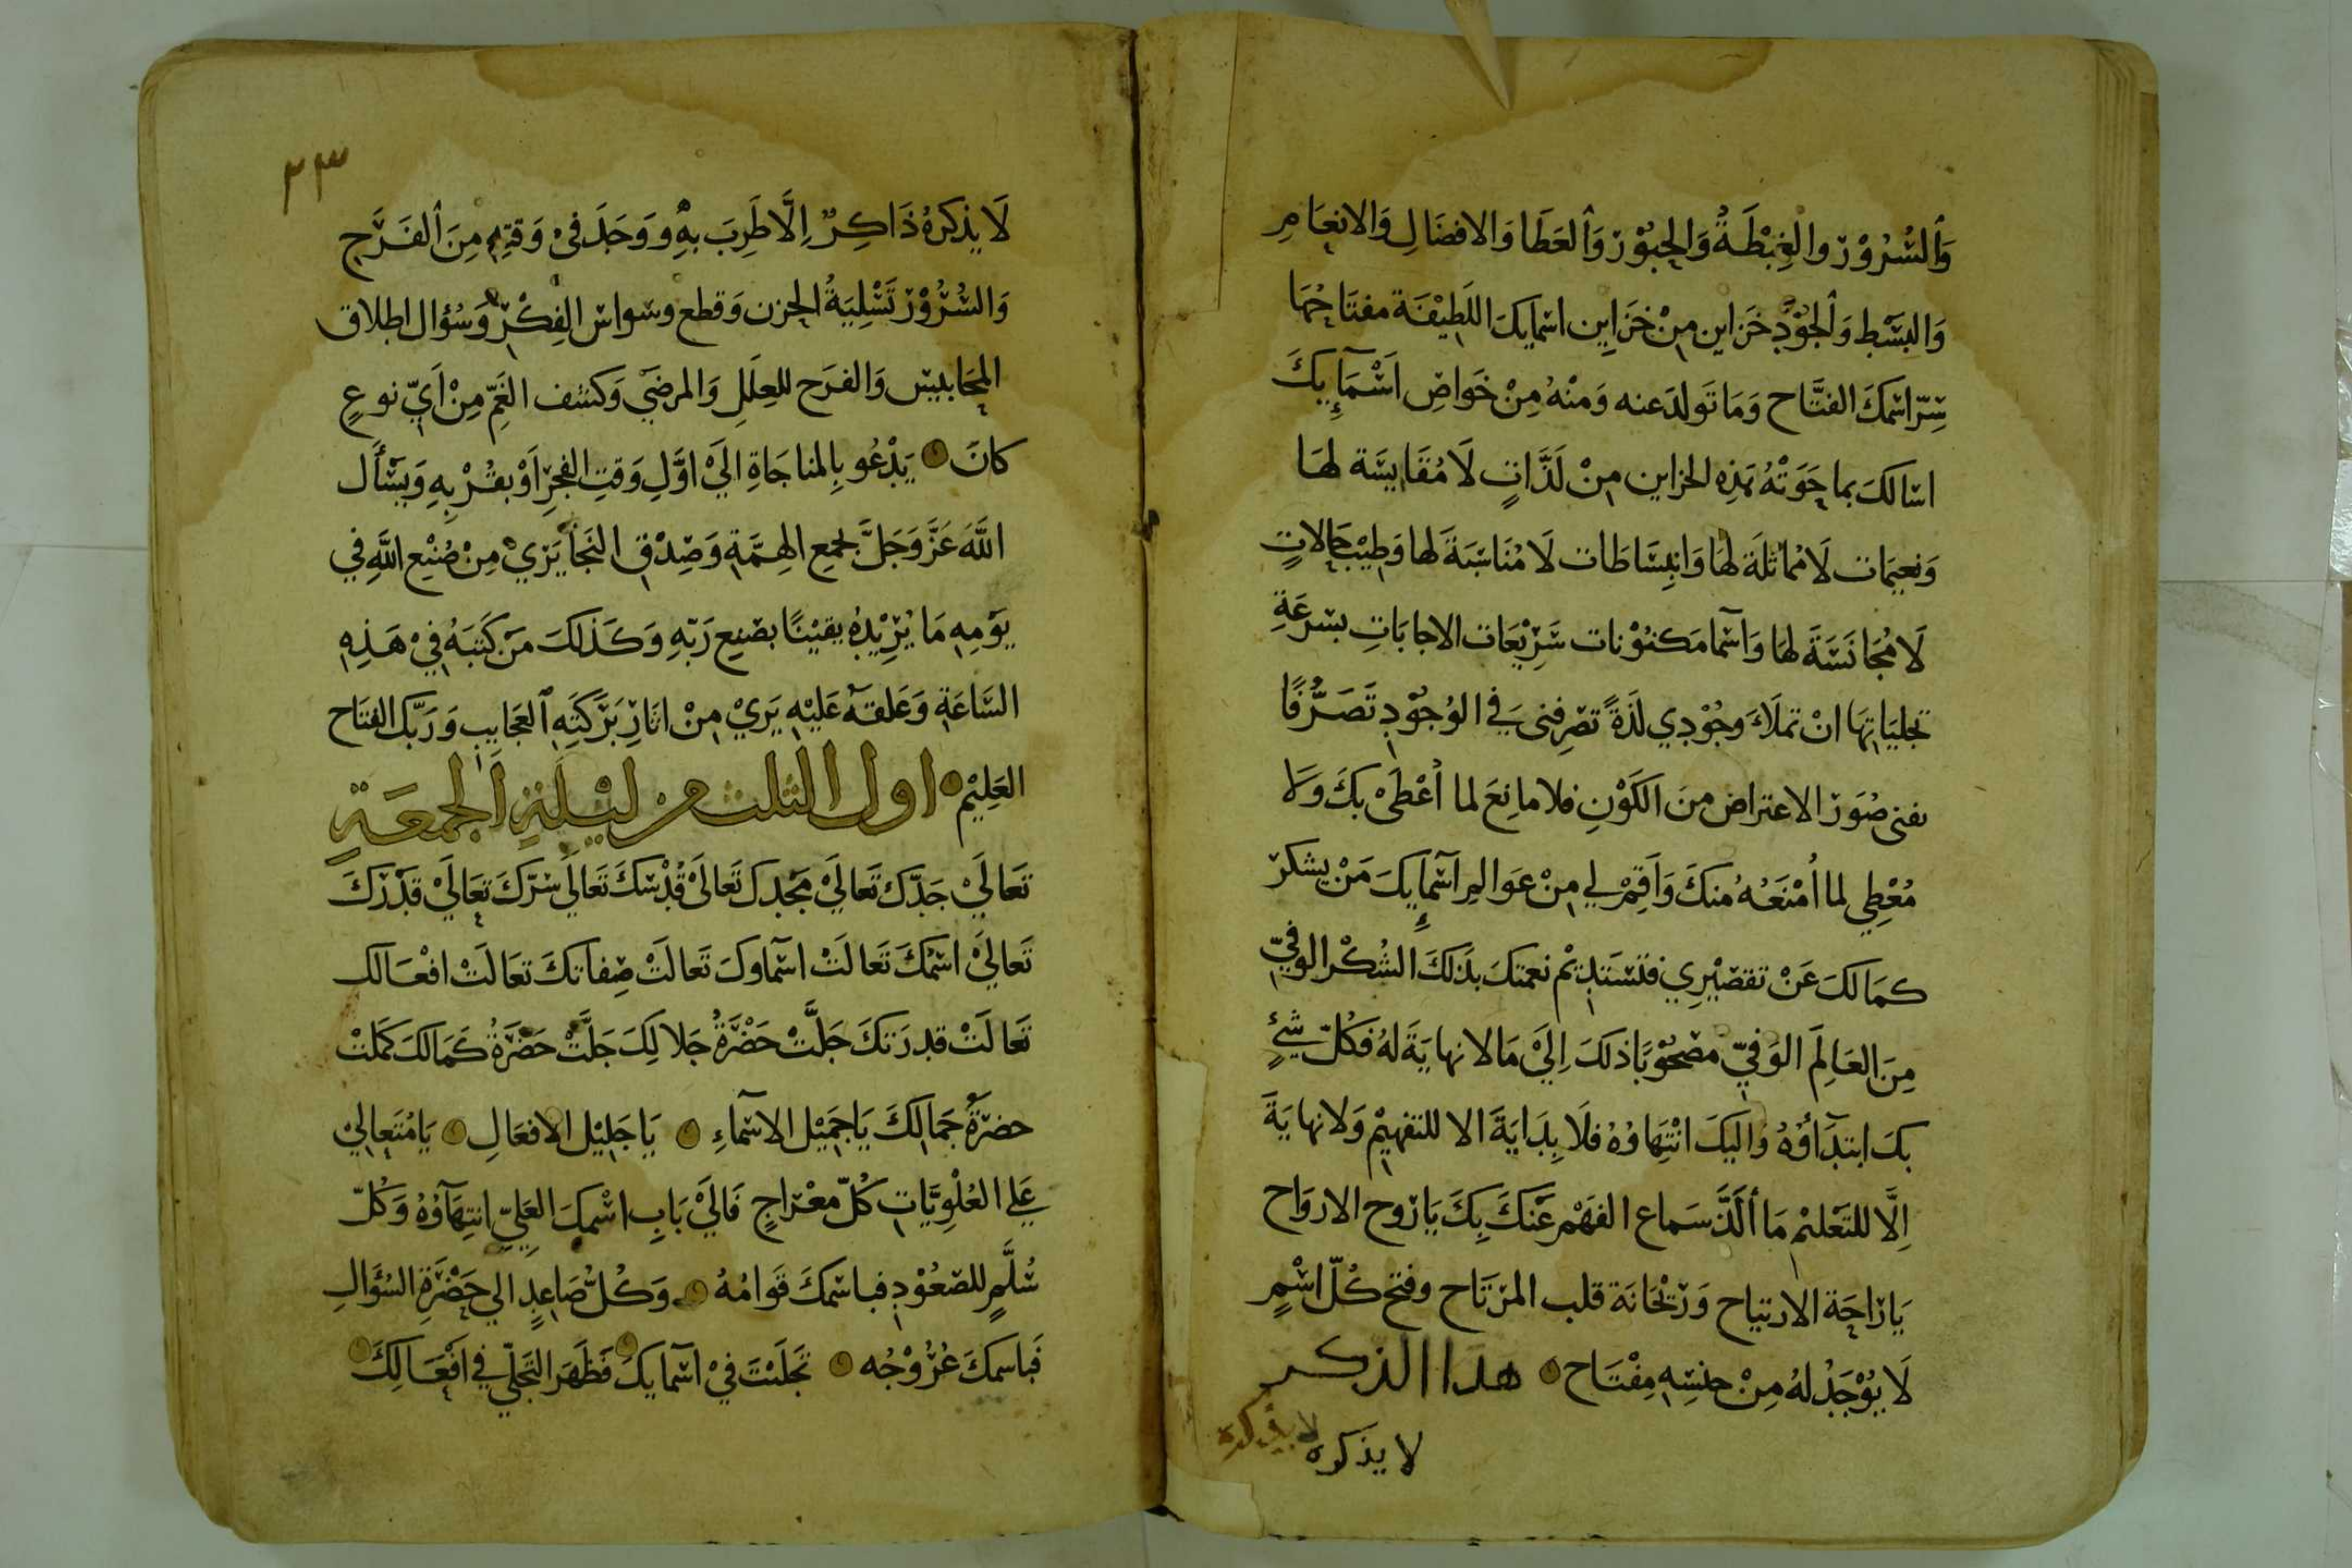 وَالسُّرُوْر والْغِبْطَةُ وَالحُبُوْر وَالعَطَا وَالافضَالِ وَالانعَامِ
وَالبَسْط وَالجُوْدِ خَزاين مِنْ خَزَاين اسمايكَ اللَطِيْفَة مفتَاحُهَا
سِرّ اسْمكَ الفتَّاح وَمَا تَولدَ عنه وَمنْهُ مِنْ خَواصِ اَسْمَآيِكَ
اسالكَ بما حَوَتْهُ هَذِه الخزاين مِنْ لَذَّاتٍ لَا مُقَايسَة لهَا
وَنعِيمَات لَا مُمَاثَلَة لهَا وَانبِسَاطَات لَا مُنَاسَبَةَ لها وَطِيْب حَالاتٍ
لَا مُجَانَسَةَ لهَا وَاَسْمَا مَكنُوْنات سَرِيْعَات الاجابَاتِ بسرعَةِ
تجليَاتِهَا انْ تملَاَ وجُوْدِي لذَةً تصْرِفنى فِي الوُجُوْدِ تَصَرُّفًا
يفنى صُوَرَ الاعتراض منَ الكَوْنِ فلا مانِعَ لما اُعْطَىْ بكَ وَلَا
مُعْطِي لما اُمْنَعَهُ منكَ وَاَقِمْ لِي مِنْ عَوالمِ اَسْمآيِكَ مَنْ يشكر
كمَالكَ عَنْ تقصْيْرِي فتسْتَدِيْم نعمتكَ بذَلكَ الشُكْر الوفيّ
مِنَ العَالِمَ الوَفيّ مصْحُوْبًا ذلكَ اِلَيْ مَا لا نهايَةَ لهُ فَكُلّ شَيْءٍ
بكَ ابتدَآؤُهُ وَاليكَ انْتِهَاوُهُ فلَا بِدَايَةَ الا للتفهِيْم وَلا نهايَةَ
اِلَّا للتَعْليْم مَا اَلَذَّ سَماع الفَهْم عَنكَ بِكَ يَا رَوح الارواح
يَا رَاحَة الارتياح وَرَيْحَانَة قلب المرتَاح وفتح كُلّ اسْمٍ
لَا يُوْجَدُ لهُ مِنْ جنسِهِ مِفْتَاح هذا الذكر
لا يذكره
لا يذكره
٢٣
لَا يذكرهُ ذَاكِرٌ اِلَّا طَرِبَ بهِ وَوَجَدَ فيْ وَقتِهِ مِنَ الفَرَحِ
وَالسُّرُوْر تَسْلِيَةُ الحزن وَقطع وسْوَاس الفِكْر وَسُؤال اطلاق
المحَابيس وَالفرَح للعِلَلِ وَالمرضَى وَكشف الغَمّ مِنْ اَيّ نوعٍ
كانَ يَدْعُو بِالمناجَاةِ اليَ اوَّلِ وَقتِ الفجرِ اَوْ بقُرْبِهِ وَيَسْأَل
اللَّهَ عَزَّ وَجَلَّ بجمع الهِمَّةِ وَصِدْقِ التجأ يَرَيْ مِنْ صُنْعِ اللَّهِ في
يَوْمِهِ مَا يُزِيْدُهُ يقيْنًا بصنيع رَبّهِ وَكَذلكَ مَنْ كَتبَهُ فِيْ هَذِهِ
السَّاعَةِ وَعَلقهُ عَليْهِ يَرَيْ مِنْ اثَارِ بَرَكَتِهِ العَجَايب وَرَبّك الفتَاح
العَلِيْم اول الثلث من ليْلَةِ الجمعَةِ
تَعَالَيْ جَدّكَ تَعَالَيْ مَجْدكَ تَعَالَىْ قُدْسكَ تَعَالَي سِرّكَ تعَالَيْ قَدْرَكَ
تَعَاليْ اسْمُكَ تَعَالَتْ اسْمَاوكَ تَعَالَتْ صِفاتكَ تعَالَتْ افْعَالك
تَعَالَتْ قدرَتكَ جَلَّتْ حَضْرَةُ جَلالِكَ جَلَّتْ حَضْرَةُ كَمَالكَ كَمَلَتْ
حضرَةُ جَمَالكَ يَا جَمِيْل الاسْمآءِ يَا جَلِيْل الافعَالِ يَا مُتَعَالِيْ
عَلي العُلْوِيَّاتِ كُلّ معْرَاجٍ فَاليْ بَابِ اسْمكَ العَلِيّ انتِهَآؤُهُ وَكُلّ
سُلَّمٍ للصعُوْدِ فباسْمكَ قَوَامُهُ وَكُلُّ صَاعِدٍ الي حَضْرَةِ السُؤَالِ
فَباسمكَ عُرُوْجُه تجَلَيْتَ فيْ اسْمآيكَ فَظَهَرَ التجَلّي في اَفْعَالِكَ